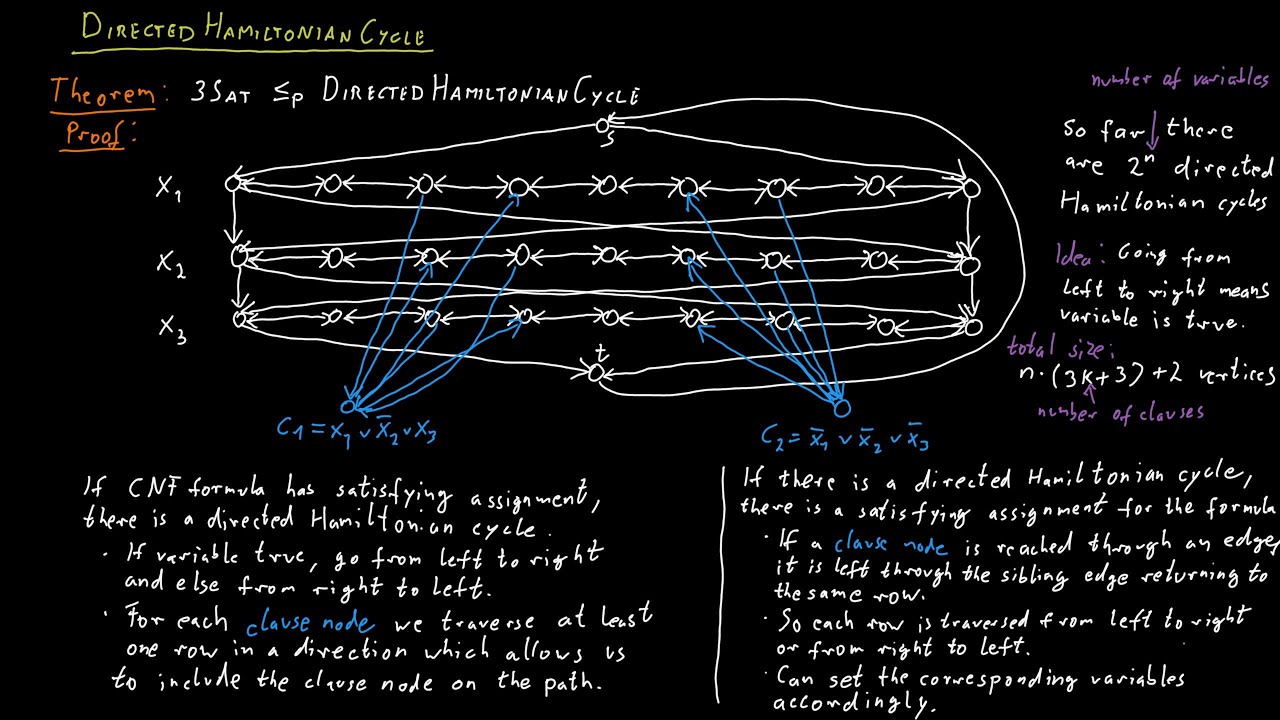 DIRECTED HAMILTONIAN CYCLE
Theorem: 3SAT ≤p DIRECTED HAMILTONIAN CYCLE
Proof:
s
X1
X2
X3
t
C1 = x1 ∨ x̄2 ∨ x3
C2 = x̄1 ∨ x̄2 ∨ x̄3
number of variables
So far there
are 2^n directed
Hamiltonian cycles
Idea: Going from
left to right means
variable is true.
total size:
n·(3k+3)+2 vertices
number of clauses
If CNF formula has satisfying assignment,
there is a directed Hamiltonian cycle.
· If variable true, go from left to right
and else from right to left.
· For each clause node we traverse at least
one row in a direction which allows us
to include the clause node on the path.
If there is a directed Hamiltonian cycle,
there is a satisfying assignment for the formula
· If a clause node is reached through an edge,
it is left through the sibling edge returning to
the same row.
· So each row is traversed from left to right
or from right to left.
· Can set the corresponding variables
accordingly.